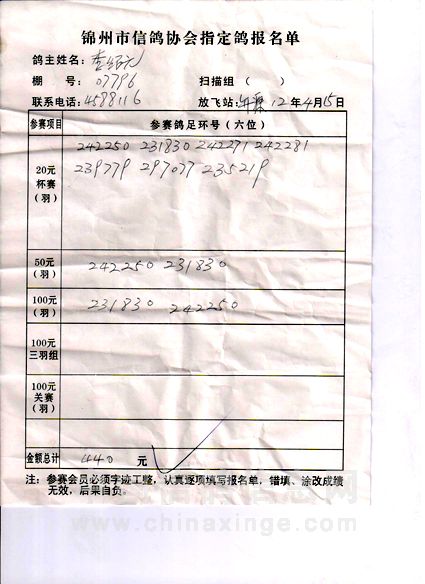 锦州市信鸽协会指定鸽报名单
鸽主姓名：李绍元
棚 号：07796 扫描组（ ）
联系电话：4588116 放飞站： 12年4月15日
参赛项目 参赛鸽足环号（六位）
20元杯赛（羽） 242250 231830 242271 242281
239779 297077 235219
50元（羽） 242250 231830
100元（羽） 231830 242250
100元三羽组
100元关赛（羽）
金额总计 440 元
注：参赛会员必须字迹工整，认真逐项填写报名单，错填、涂改成绩
无效，后果自负。
www.chinaxinge.com